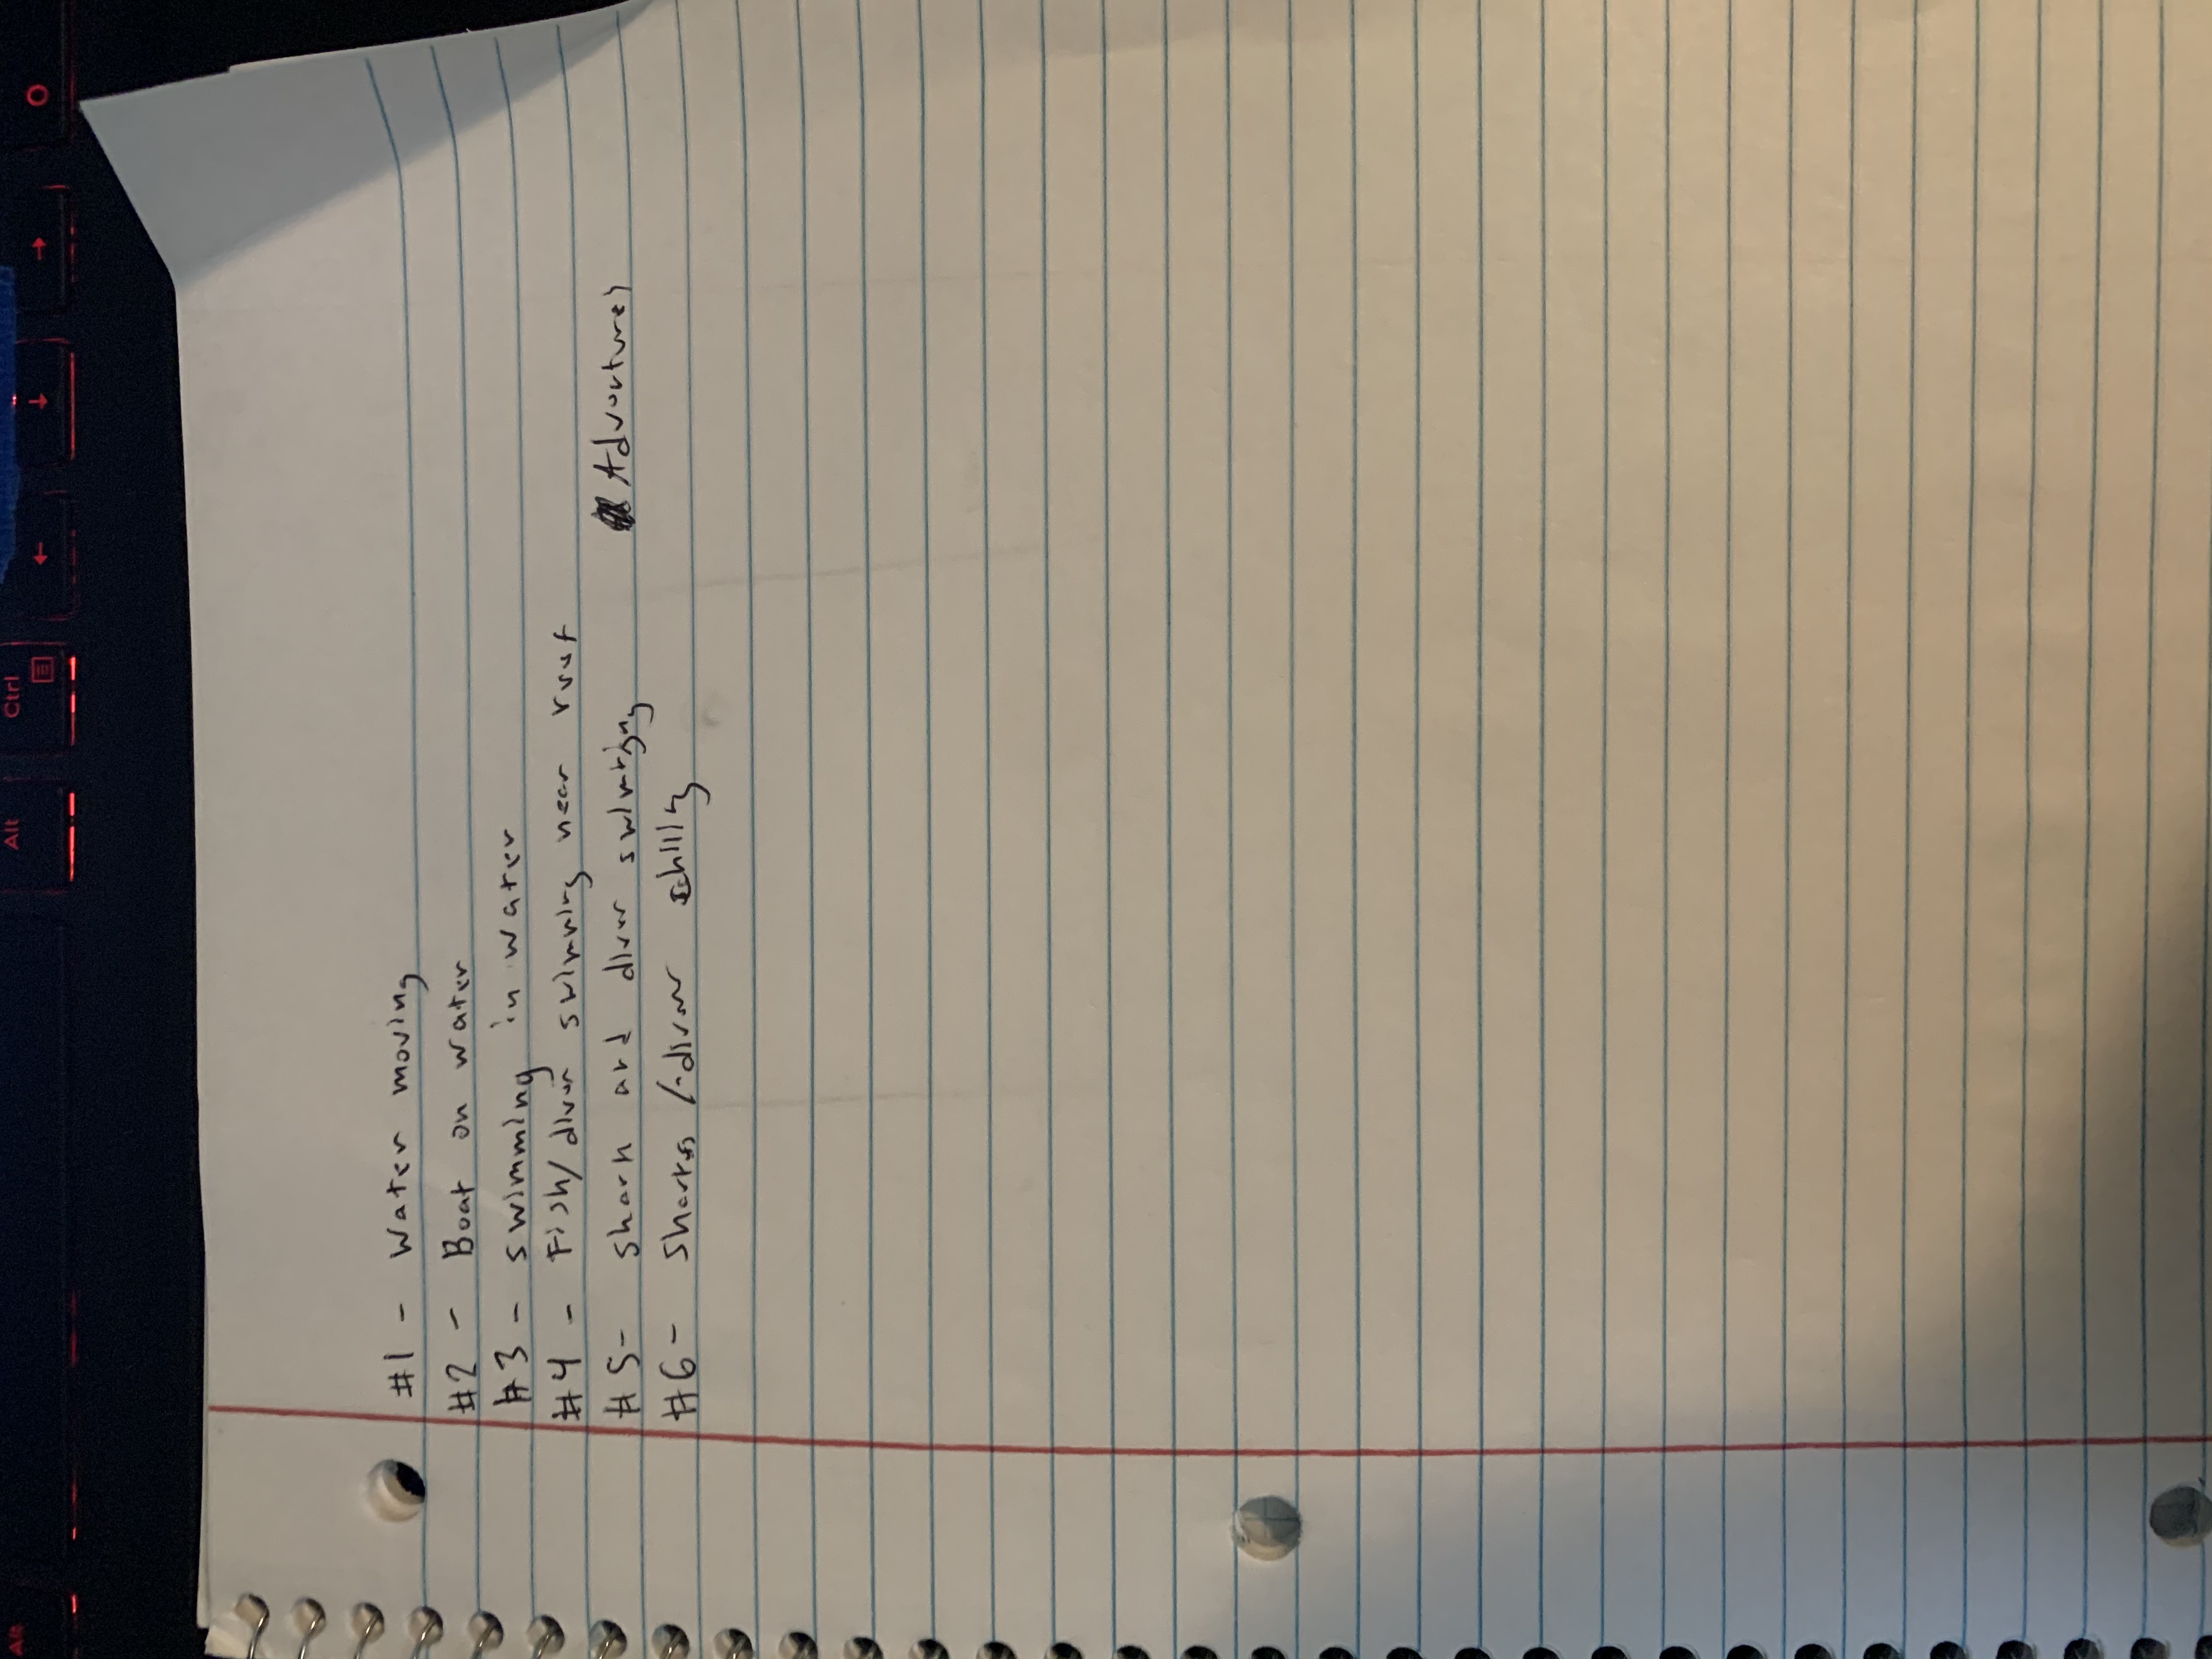 Alt Alt Ctrl ← ↓ →
#1 - Water moving
#2 - Boat on water
#3 - swimming in water
#4 - Fish/diver swimming near reef
#5- shark and diver swimming Adventures
#6- sharks /-diver chilling